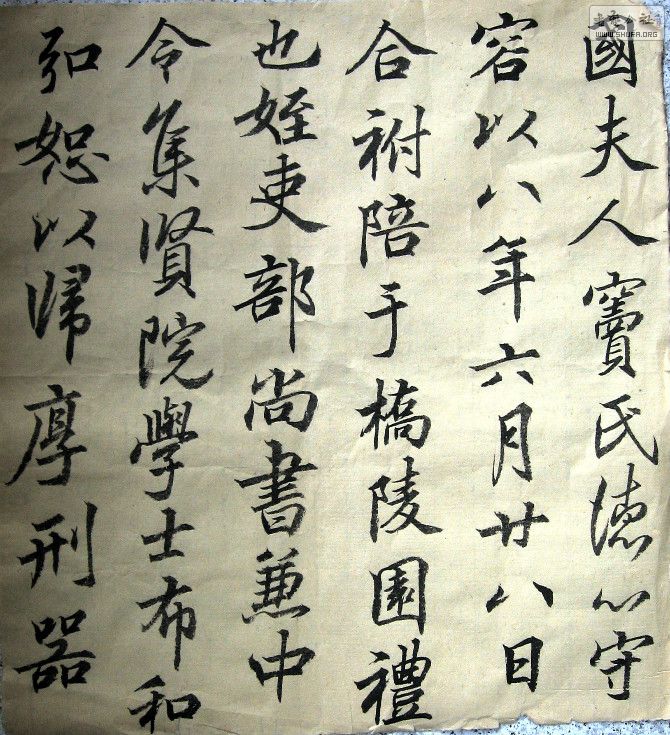 國夫人竇氏德心守
容以八年六月廿八日
合祔陪于橋陵園禮
也姪吏部尚書兼中
令集賢院學士布和
弘恕以歸厚刑器
WWW.SHUFA.ORG